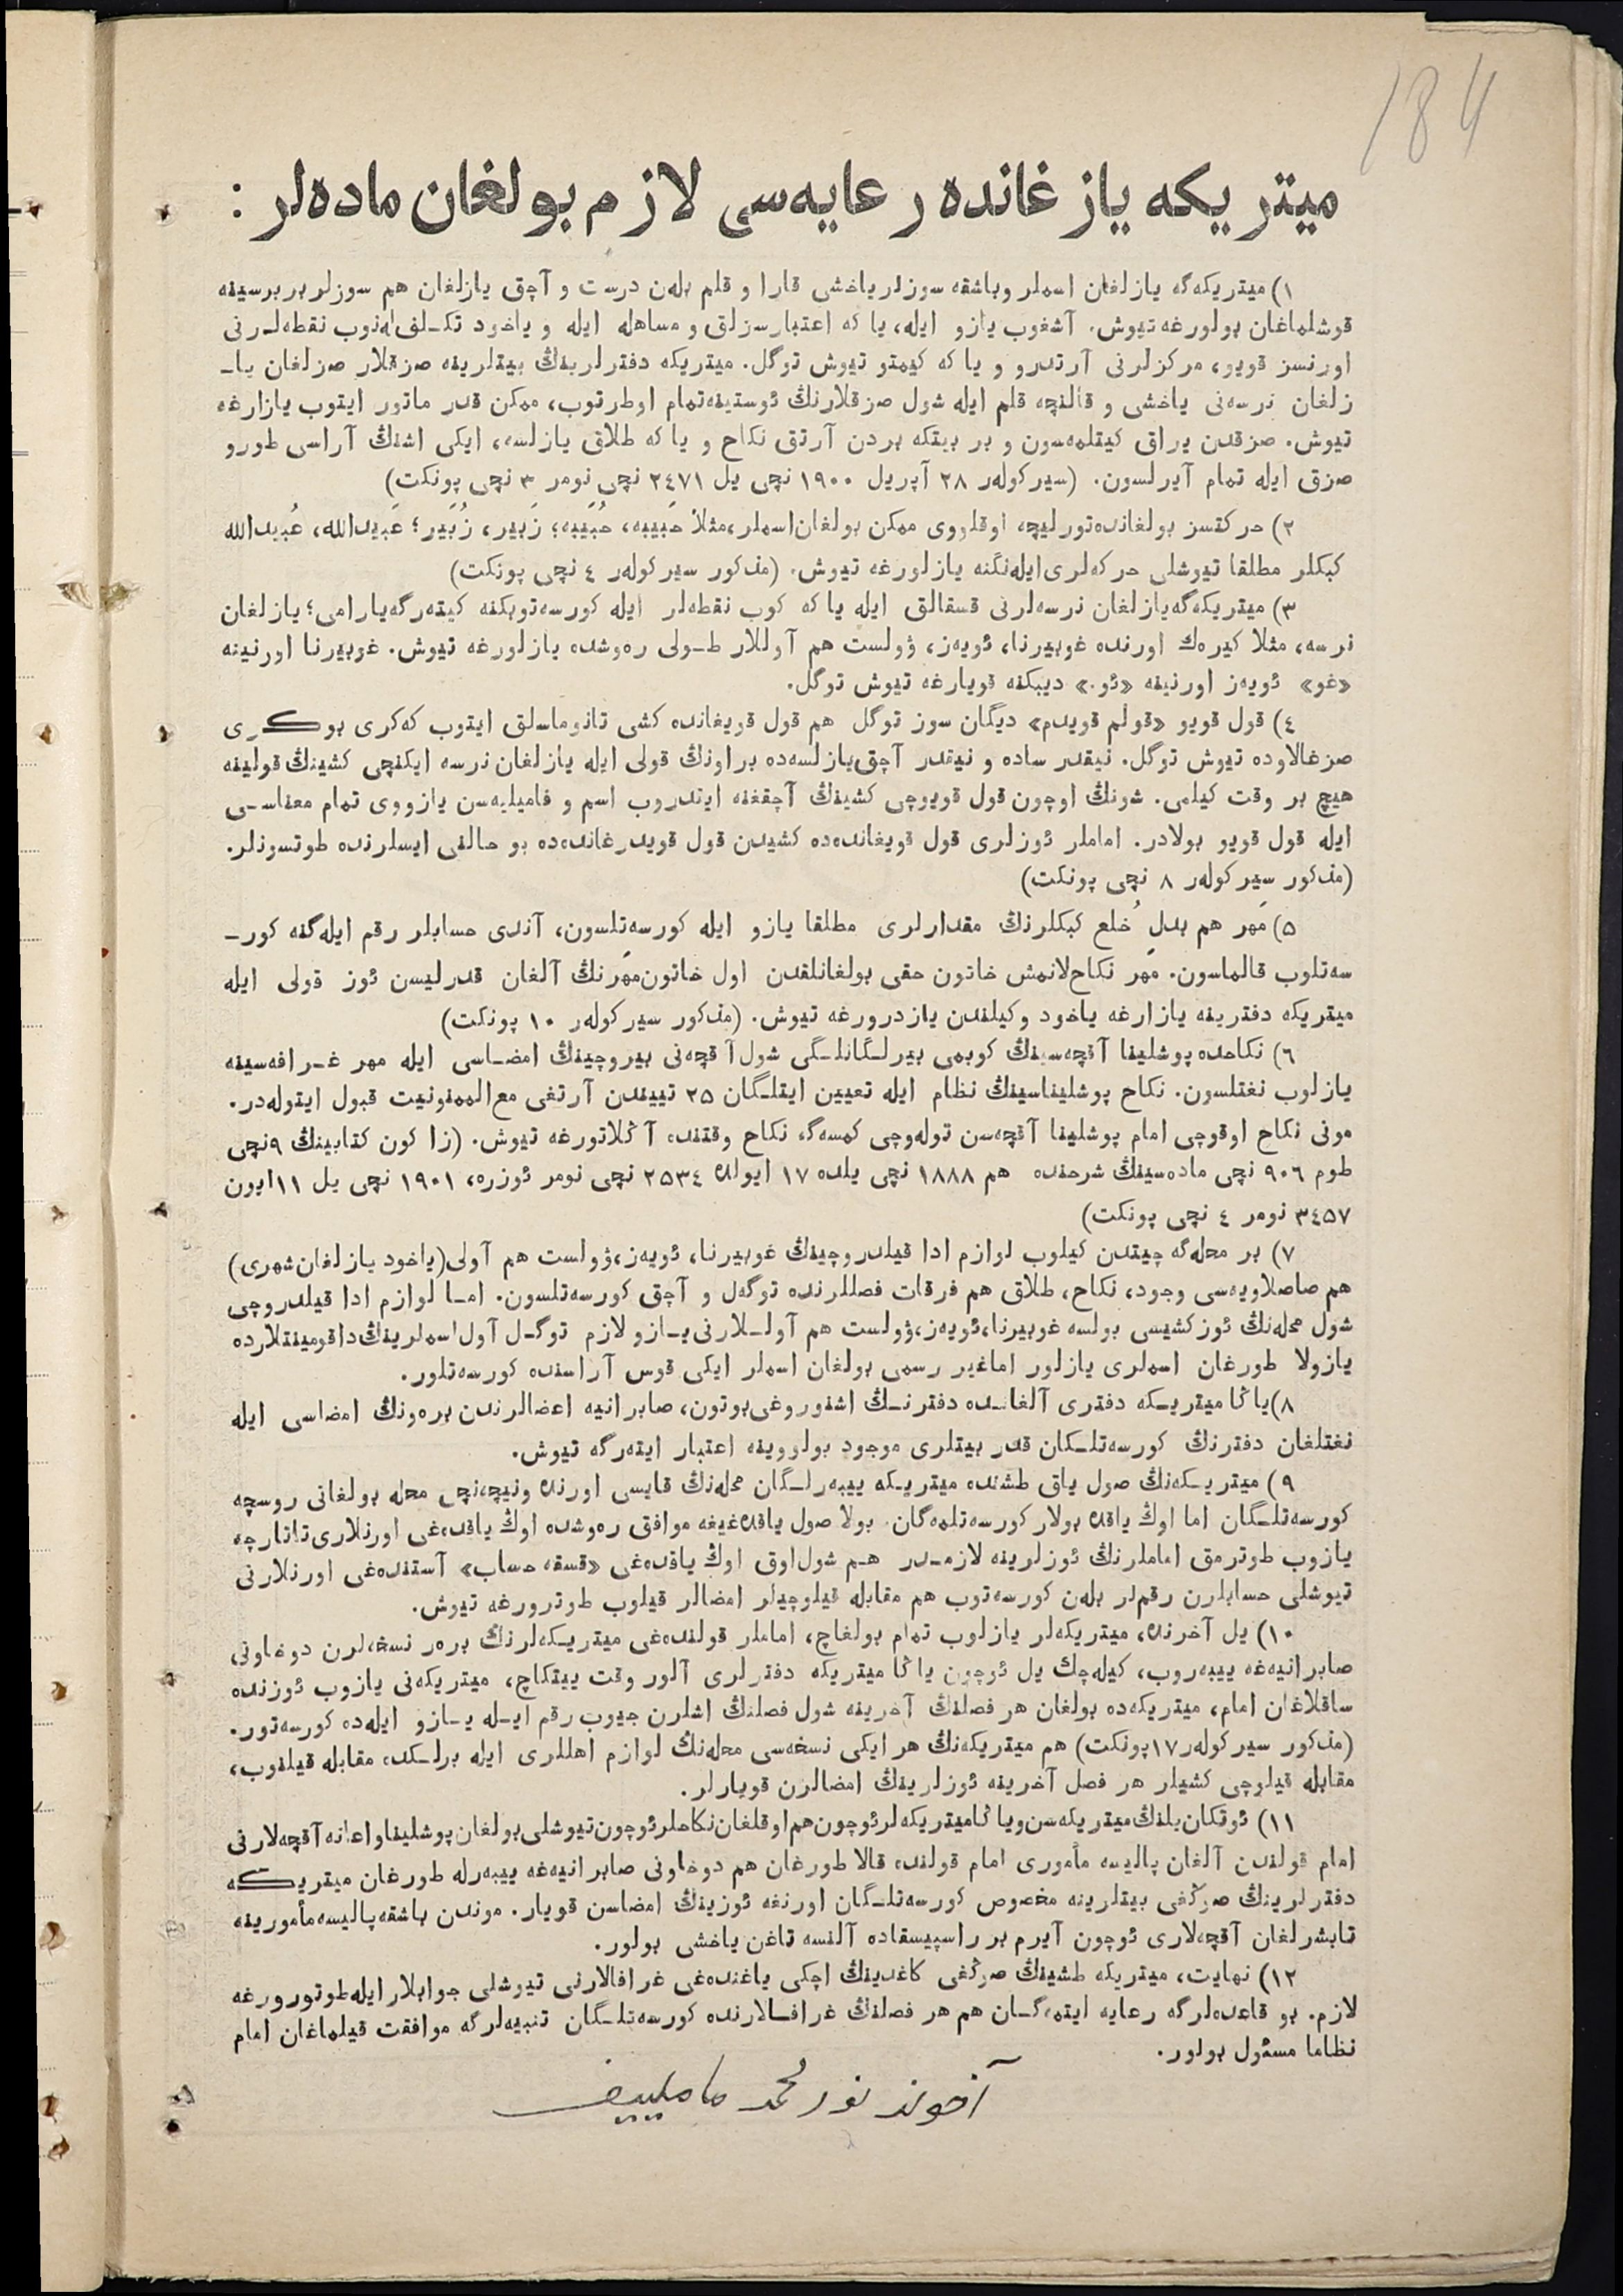 184
میتریكه یازغانده رعایه‌سی لازم بولغان ماده‌لر :
١) میتریكه‌گه یازلغان اسملر وباشقه سوزلر یاخشی قارا و قلم بله‌ن درست و آچق یازلغان هم سوزلر بربرسینه
قوشلماغان بولورغه تیوش. آشغوب یازو ایله، یا كه اعتبارسزلق و مساهله ایله و یاخود تكـلف‌له‌نوب نقطه‌لـرنی
اورنسز قویو، مركزلرنی آرتدرو و یا كه كیمتو تیوش توگل. میتریكه دفترلرینڭ بیتلرینه صزقلار صزلغان یاـ
زلغان نرسه‌نی یاخشی و قالنچه قلم ایله شول صزقلارنڭ ئوستینه‌تمام اوطرتوب، ممكن قدر ماتور ایتوب یازارغه
تیوش. صزقدن یراق كیتلمه‌سون و بر بیتكه بردن آرتق نكاح و یا كه طلاق یازلسه، ایكی اشنڭ آراسی طورو
صزق ایله تمام آیرلسون. (سیركوله‌ر ٢٨ آپریل ١٩٠٠ نچی یل ٢٤٧١ نچی نومر ٣ نچی پونكت)
٢) حركتسز بولغانده‌تورلیچه اوقلووی ممكن بولغان‌اسملر،مثلا حَبیبه، حُبَیبه؛ زَبیر، زُبَیر؛ عَبیدالله، عُبیدالله
كبكلر مطلقا تیوشلی حركه‌لری‌ایله‌نگنه یازلورغه تیوش. (مذكور سیركوله‌ر ٤ نچی پونكت)
٣) میتریكه‌گه‌یازلغان نرسه‌لرنی قسقالق ایله یا كه كوب نقطه‌لر ایله كورسه‌توبكنه كیته‌رگه‌یارامی؛ یازلغان
نرسه، مثلا كیره‌ك اورنده غوبیرنا، ئویه‌ز، ۋولست هم آوللار طـولی ره‌وشده یازلورغه تیوش. غوبیرنا اورنینه
«غو» ئویه‌ز اورنینه «ئو.» دیبكنه قویارغه تیوش توگل.
٤) قول قویو «قولم قویدم» دیگان سوز توگل هم قول قویغانده كشی تانوماسلق ایتوب كه‌كری بوكـری
صزغالاوده تیوش توگل. نیقدر ساده و نیقدر آچق‌یازلسه‌ده براونڭ قولی ایله یازلغان نرسه ایكنچی كشینڭ قولینه
هیچ بر وقت كیلمی. شونڭ اوچون قول قویوچی كشینڭ آچقغنه ایتدروب اسم و فامیلیه‌سن یازووی تمام معناسـی
ایله قول قویو بولادر. اماملر ئوزلری قول قویغانده‌ده كشیدن قول قویدرغانده‌ده بو حالنی ایسلرنده طوتسونلر.
(مذكور سیركوله‌ر ٨ نچی پونكت)
٥) مَهر هم بدلِ خُلع كبكلرنڭ مقدارلری مطلقا یازو ایله كورسه‌تلسون، آندی حسابلر رقم ایله‌گنه كورـ
سه‌تلوب قالماسون. مَهر نكاح‌لانمش خاتون حقی بولغانلقدن اول خاتون‌مَهرنڭ آلغان قدرلیسن ئوز قولی ایله
میتریكه دفترینه یازارغه یاخود وكیلندن یازدرورغه تیوش. (مذكور سیركوله‌ر ١٠ پونكت)
٦) نكاحده پوشلینا آقچه‌سینڭ كوبمی بیرلـگانلـگی شول آقچه‌نی بیروچینڭ امضـاسی ایله مهر غـرافه‌سینه
یازلوب نغتلسون. نكاح پوشلیناسینڭ نظام ایله تعیین ایتلـگان ٢٥ تییندن آرتغی مع‌الممنونیت قبول ایتوله‌در.
مونی نكاح اوقوچی امام پوشلینا آقچه‌سن توله‌وچی كمسه‌گه نكاح وقتنده آڭلاتورغه تیوش. (زاكون كتابینڭ ٩نچی
طوم ٩٠٦ نچی ماده‌سینڭ شرحنده هم ١٨٨٨ نچی یلده ١٧ ایولده ٢٥٣٤ نچی نومر ئوزره، ١٩٠١ نچی یل ١١ایون
٣٤٥٧ نومر ٤ نچی پونكت)
٧) بر محله‌گه چیتدن كیلوب لوازم ادا قیلدروچینڭ غوبیرنا، ئویه‌ز،ۋولست هم آولی(یاخود یازلغان‌شهری)
هم صاصلاویه‌سی وجود، نكاح، طلاق هم فرقات فصللرنده توگه‌ل و آچق كورسه‌تلسون. امـا لوازم ادا قیلدروچی
شول محله‌نڭ ئوزكشیسی بولسه غوبیرنا،ئویه‌ز،ۋولست هم آولـلارنی‌یـازو لازم توگـل آول‌اسملرینڭ‌داقومینتلارده
یازولا طورغان اسملری یازلور اماغیر رسمی بولغان اسملر ایكی قوس آراسنده كورسه‌تلور.
٨)یاڭا میتریـكه دفتری آلغانـده دفترنـڭ اشنوروغی‌بوتون، صابرانیه اعضالرندن بره‌ونڭ امضاسی ایله
نغتلغان دفترنڭ كورسه‌تلـكان قدر بیتلری موجود بولووینه اعتبار ایته‌رگه تیوش.
٩) میتریـكه‌نڭ صول یاق طشنده میتریـكه ییبه‌رلـگان محله‌نڭ قایسی اورنده ونیچه‌نچی محله بولغانی روسچه
كورسه‌تلـگان اما اوڭ یاقده بولار كورسه‌تلمه‌گان. بولا صول یاقده‌غیغه موافق ره‌وشده اوڭ یاقده‌غی اورنلاری‌تاتارچه
یازوب طوترمق اماملرنڭ ئوزلرینه لازمـدر هـم شول‌اوق اوڭ یاقده‌غی «قسقه حساب» آستنده‌غی اورنلارنی
تیوشلی حسابلرن رقملر بله‌ن كورسه‌توب هم مقابله قیلوچیلر امضالر قیلوب طوترورغه تیوش.
١٠) یل آخرنده، میتریكه‌لر یازلوب تمام بولغاچ، اماملر قولنده‌غی میتریـكه‌لرنڭ بره‌ر نسخه‌لرن دوخاونی
صابرانیه‌غه ییبه‌روب، كیله‌چك یل ئوچون یاڭا میتریكه دفترلری آلور وقت ییتكاچ، میتریكه‌نی یازوب ئوزنده
ساقلاغان امام، میتریكه‌ده بولغان هر فصلنڭ آخرینه شول فصلنڭ اشلرن جیوب رقم ایـله یـازو ایله‌ده كورسه‌تور.
(مذكور سیركوله‌ر١٧پونكت) هم میتریكه‌نڭ هر ایكی نسخه‌سی محله‌نڭ لوازم اهللری ایله برلـكده مقابله قیلنوب،
مقابله قیلوچی كشیلر هر فصل آخرینه ئوزلرینڭ امضالرن قویارلر.
١١) ئوتكان‌یلنڭ‌میتریكه‌سن‌ویاڭامیتریكه‌لرئوچون‌هم‌اوقلغان‌نكاحلرئوچون‌تیوشلی‌بولغان‌پوشلیناواعانه‌آقچه‌لارنی
امام قولندن آلغان پالیسه مأموری امام قولنده قالا طورغان هم دوخاونی صابرانیه‌غه ییبه‌رله طورغان میتریكه
دفترلرینڭ صوڭغی بیتلرینه مخصوص كورسه‌تلـگان اورنغه ئوزینڭ امضاسن قویار. موندن باشقه‌پالیسه‌مأمورینه
تابشرلغان آقچه‌لاری ئوچون آیرم بر راسپیسقاده آلنسه تاغن یاخشی بولور.
١٢) نهایت، میتریكه طشینڭ صوڭغی كاغدینڭ اچكی یاغنده‌غی غرافالارنی تیوشلی جوابلارایله‌طوتورورغه
لازم. بو قاعده‌لرگه رعایه ایتمه‌گـان هم هر فصلنڭ غرافـالارنده كورسه‌تلـگان تنبیه‌لرگه موافقت قیلماغان امام
نظاما مسئول بولور.
آخوند نورمحمد ماملییف